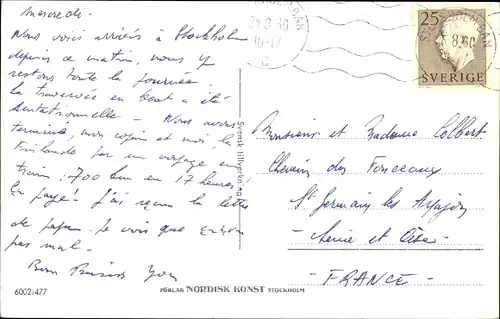 Mercredi -
Nous voici arrivés à Stockholm
depuis ce matin, nous y
restons toute la journée
la traversée en boat a été
sensationnelle - Nous avons
terminé, mon copain et moi la
Finlande par un voyage en
train : 700 km en 17 heures,
En payé! J'ai reçu la lettre
de papa. Je vois que
pas mal -
Bons Baisers
6002/477
Svensk tillverkning
FÖRLAG NORDISK KONST STOCKHOLM
STOCKHOLM BAN
8.60
25
SVERIGE
Monsieur et Madame Colbert
Chemin des Fonceaux
St Germain les Arpajon
- Seine et Oise -
- FRANCE -